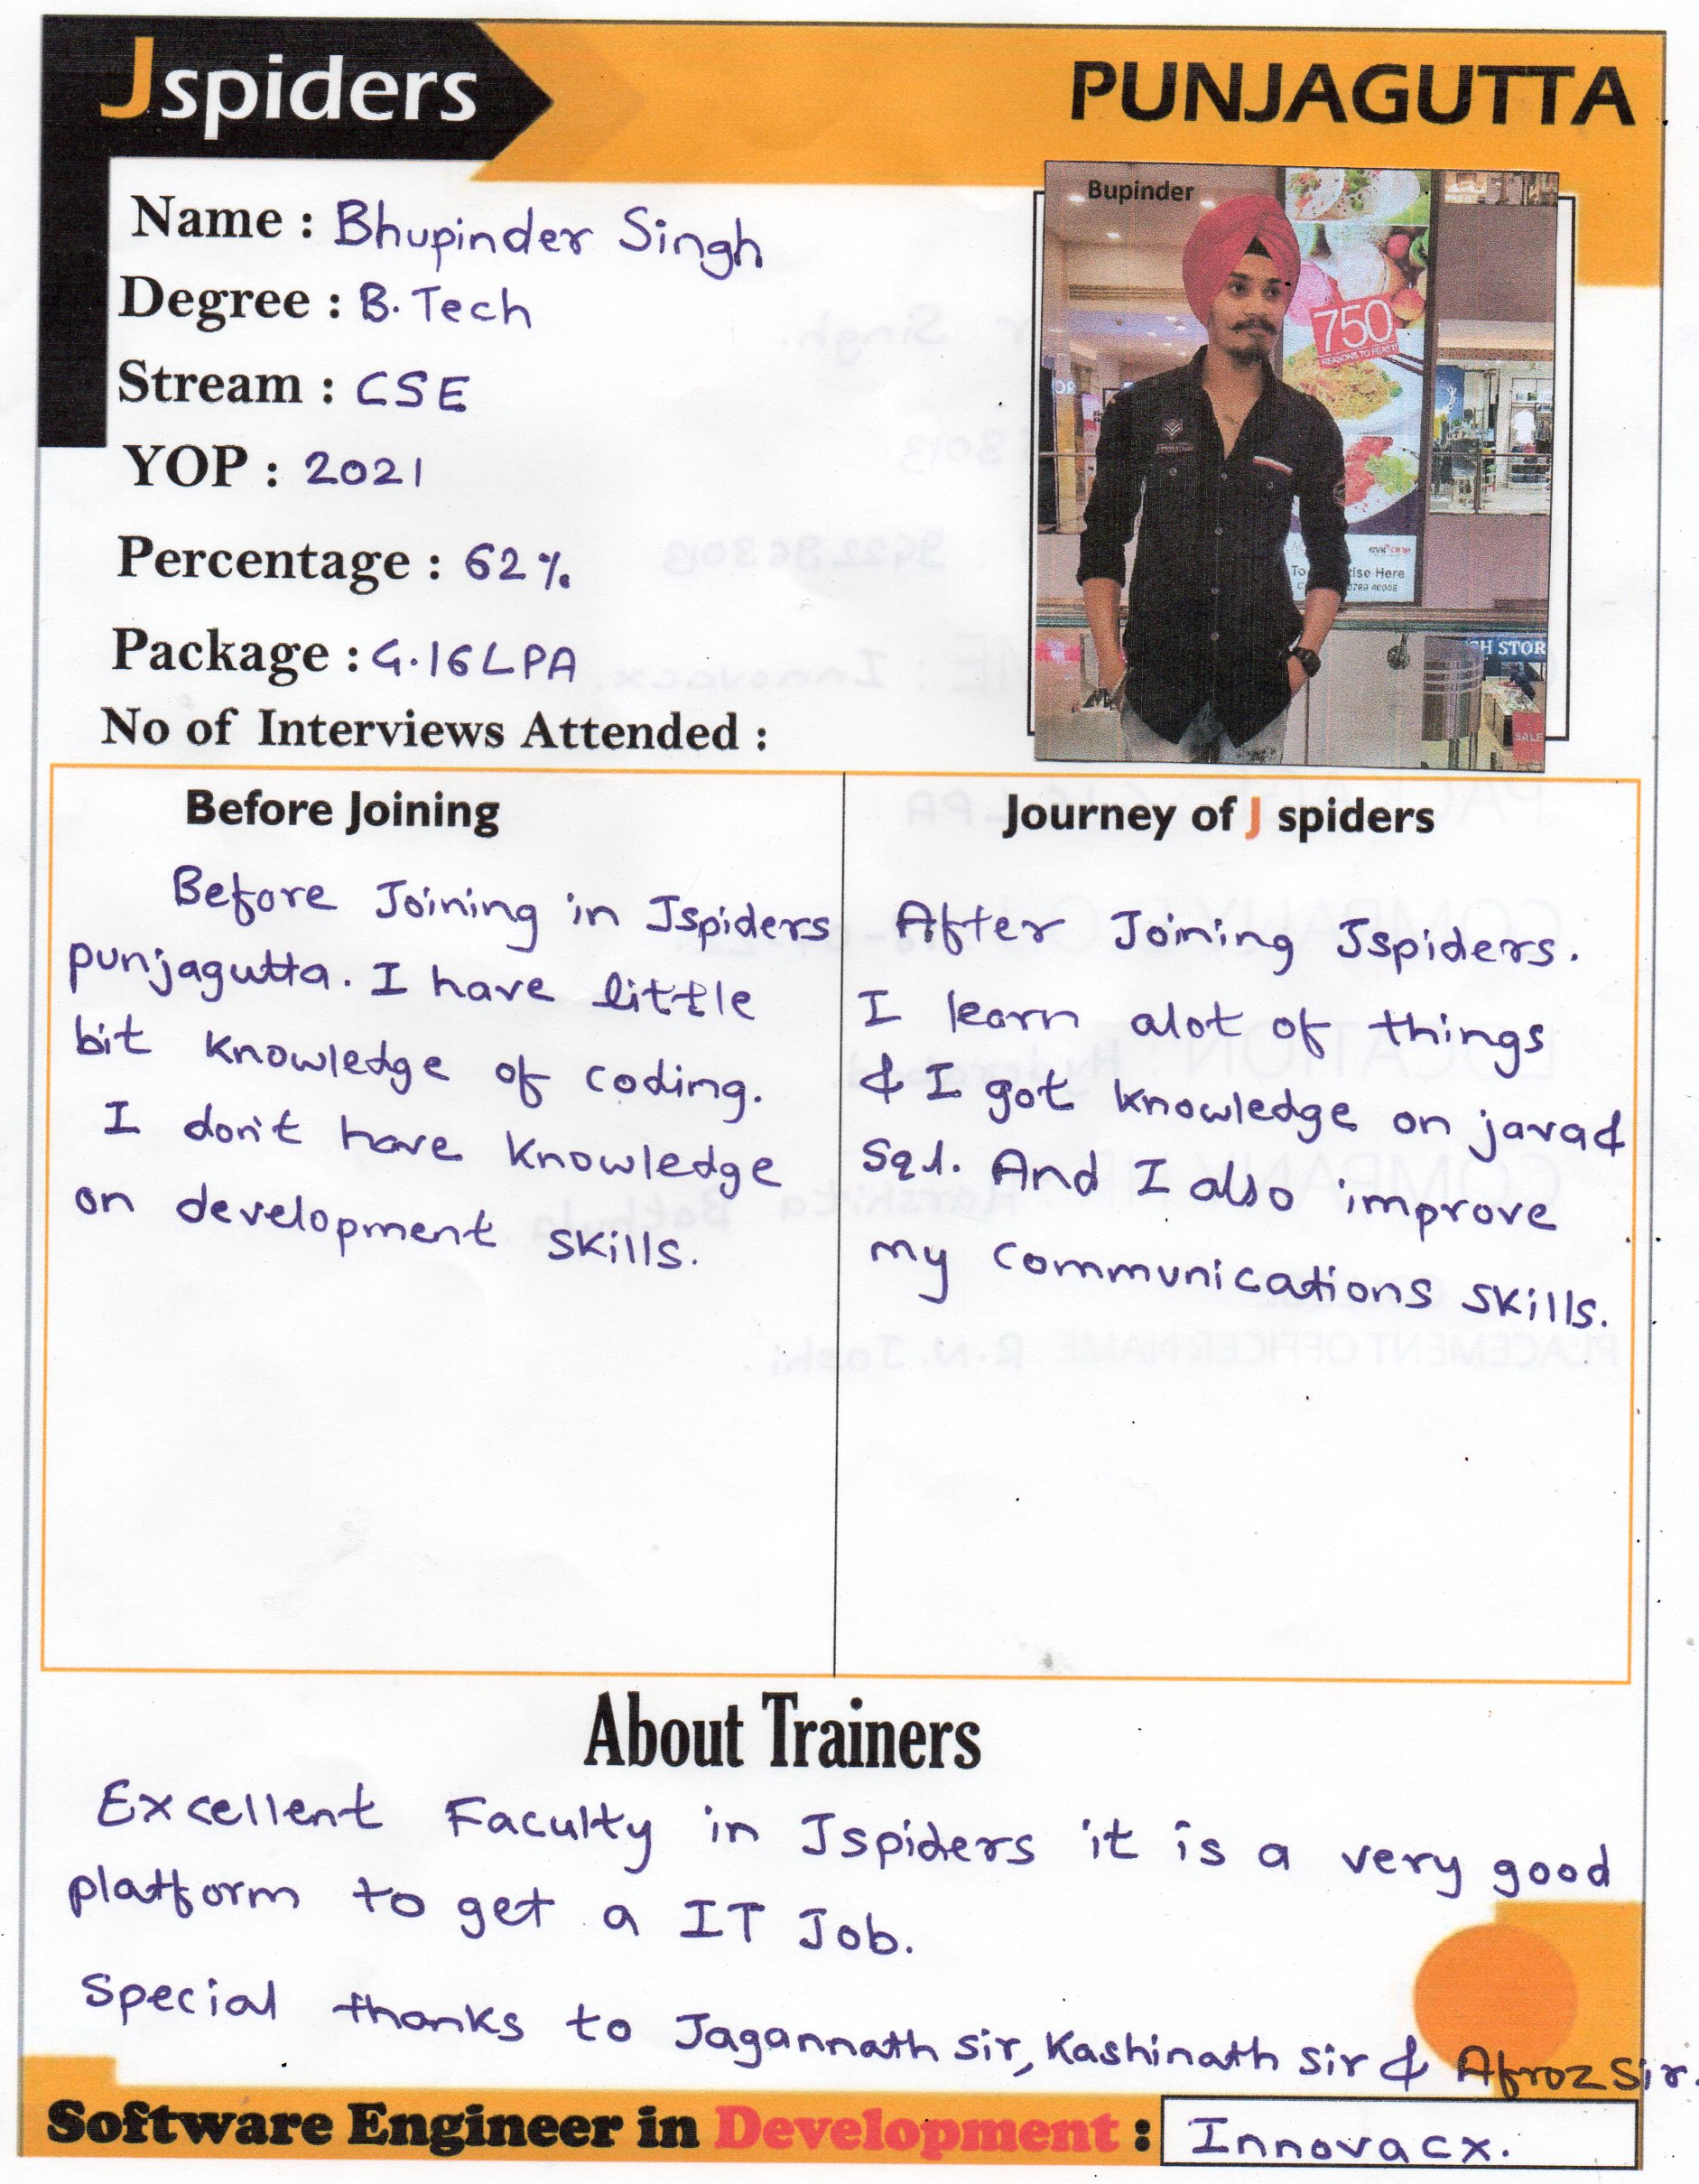 Jspiders
PUNJAGUTTA
Bupinder
Name : Bhupinder Singh
Degree : B.Tech
Stream : CSE
YOP : 2021
Percentage : 62%
Package : 4.16LPA
No of Interviews Attended :
750
REASONS TO FEAST!
To
ise Here
H STOR
SALE
Before Joining
Before Joining in Jspiders
punjagutta. I have little
bit knowledge of coding.
I don't have knowledge
on development skills.
Journey of J spiders
After Joining Jspiders.
I learn alot of things
& I got knowledge on java &
Sql. And I also improve
my communications skills.
About Trainers
Excellent Faculty in Jspiders it is a very good
platform to get a IT Job.
Special thanks to Jagannath sir, Kashinath sir & Afroz Sir.
Software Engineer in Development : Innovacx.